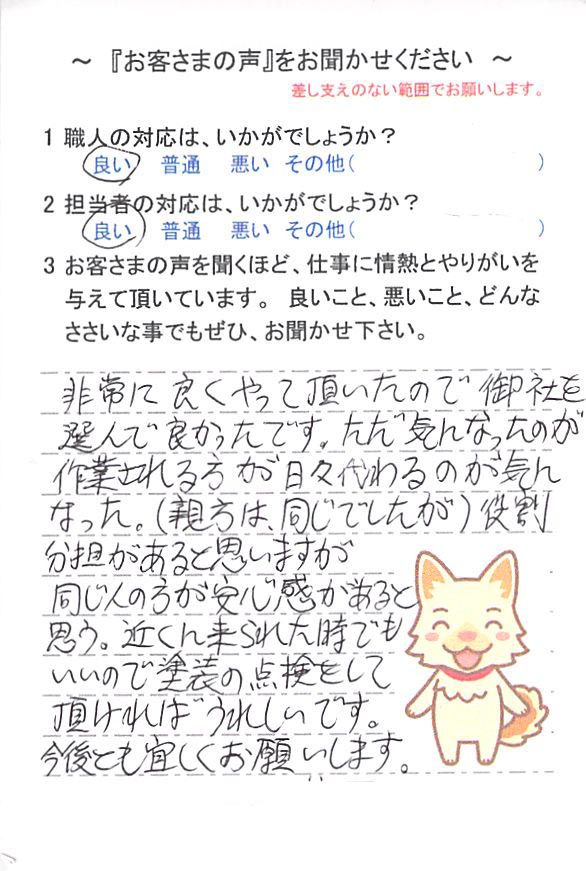 ～ 『お客さまの声』をお聞かせください ～
差し支えのない範囲でお願いします。
1 職人の対応は、いかがでしょうか？
良い 普通 悪い その他( )
2 担当者の対応は、いかがでしょうか？
良い 普通 悪い その他( )
3 お客さまの声を聞くほど、仕事に情熱とやりがいを
与えて頂いています。 良いこと、悪いこと、どんな
ささいな事でもぜひ、お聞かせ下さい。
非常に良くやって頂いたので御社を
選んで良かったです。ただ気になったのが
作業される方が日々代わるのが気に
なった。(親方は、同じでしたが)役割
分担があると思いますが
同じ人の方が安心感があると
思う。近くに来られた時でも
いいので塗装の点検をして
頂ければうれしいです。
今後とも宜しくお願いします。